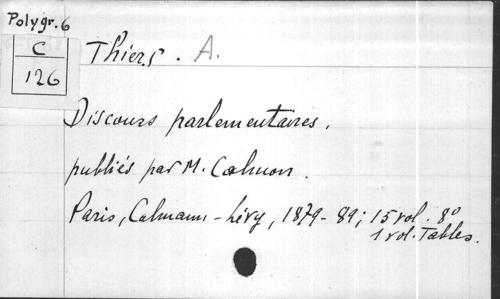 Polygr. 6
C
126
Thiers. A.
Discours parlementaires,
publiés par M. Calmon.
Paris, Calmann-Lévy, 1879-89; 15 vol. 8°
1 vol. Tables.